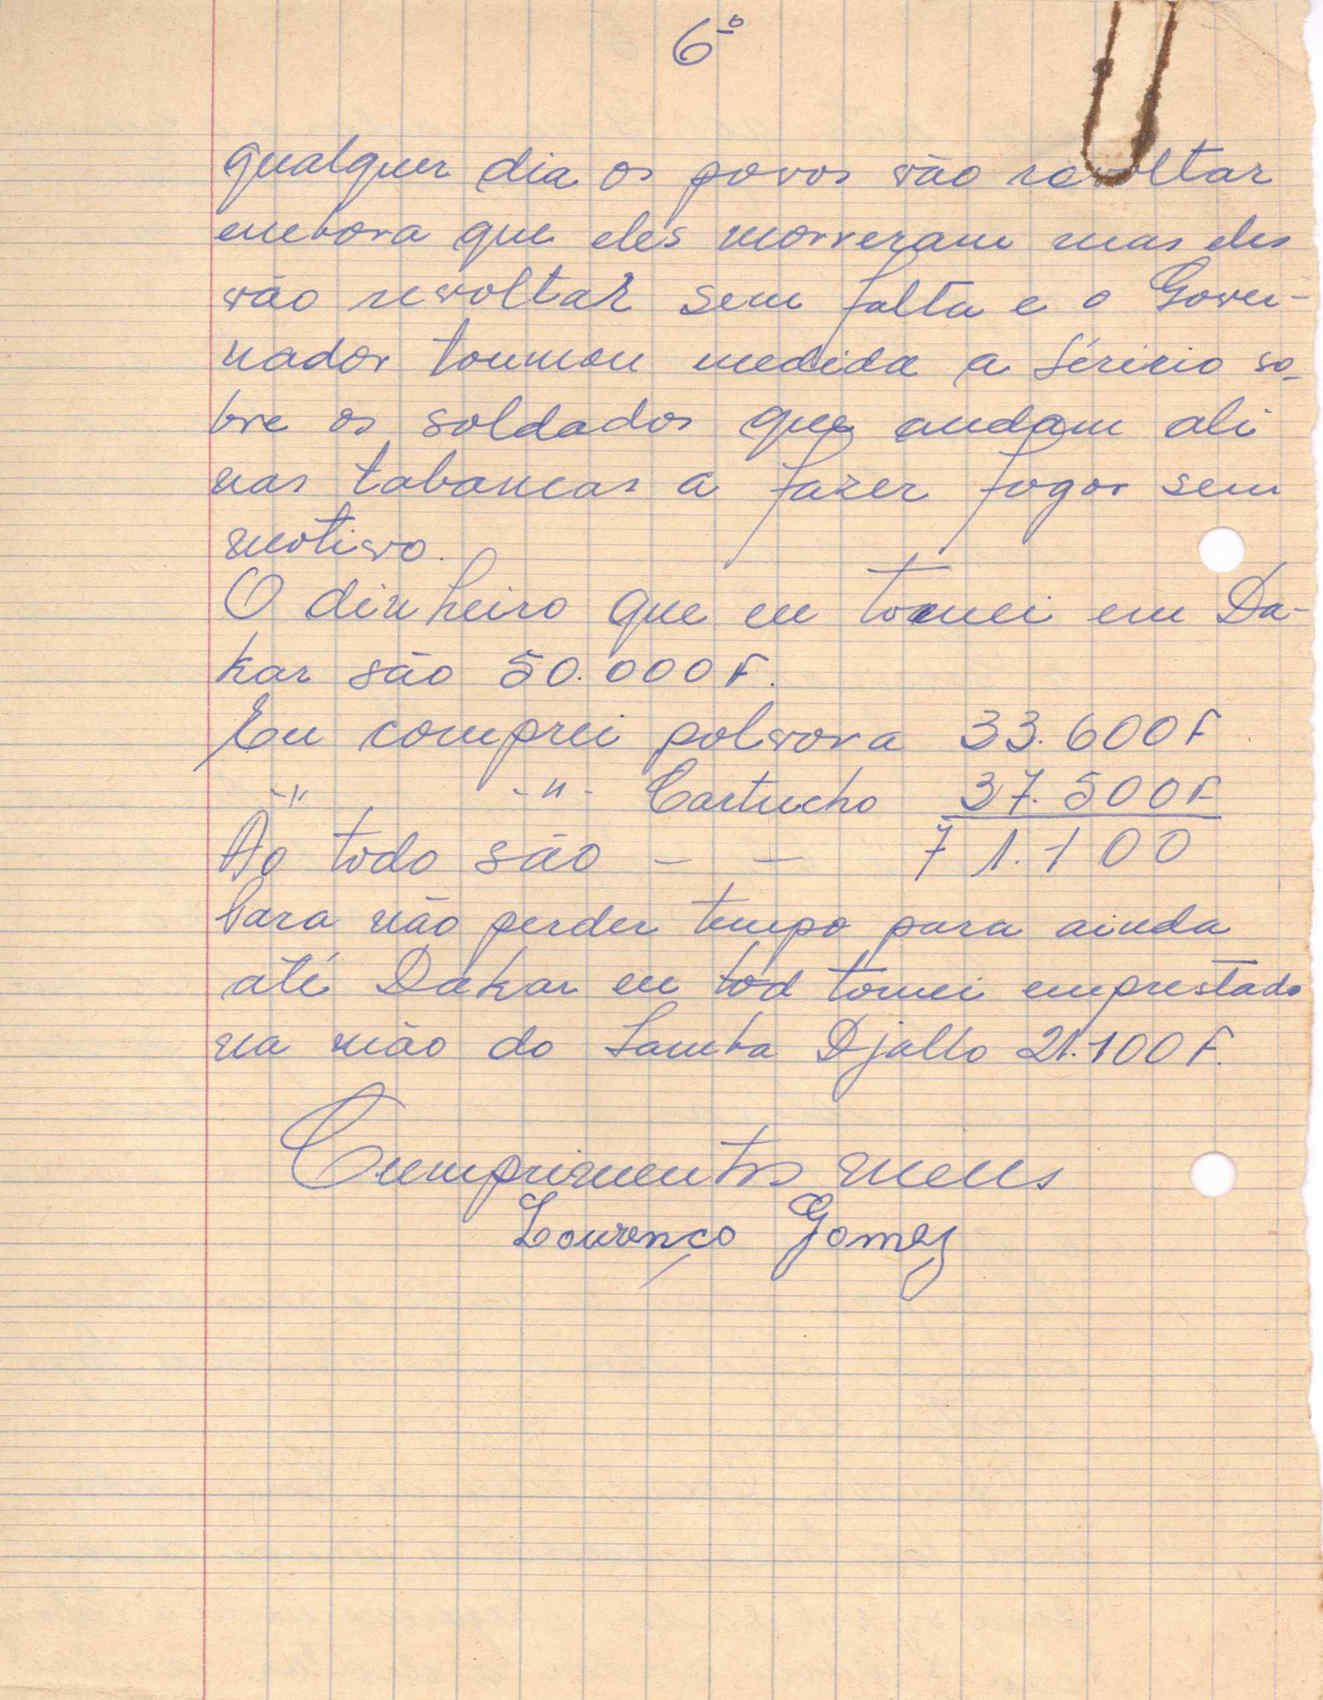 6º
qualquer dia os povos vão revoltar
embora que eles morreram mas eles
vão revoltar sem falta e o Gover-
nador toumou medida a séricio so-
bre os soldados que andam ali
nas tabancas a fazer fogos sem
motivo.
O dinheiro que eu tomei em Da-
kar são 50.000F.
Eu comprei polvora 33.600F.
-"- -"- Cartucho 37.500F
Ao todo são — — 71.100
Para não perder tempo para ainda
até Dakar eu tod tomei emprestado
na mão do Samba Djallo 21.100F.
Cumprimentos meus
Lourenço Gomes